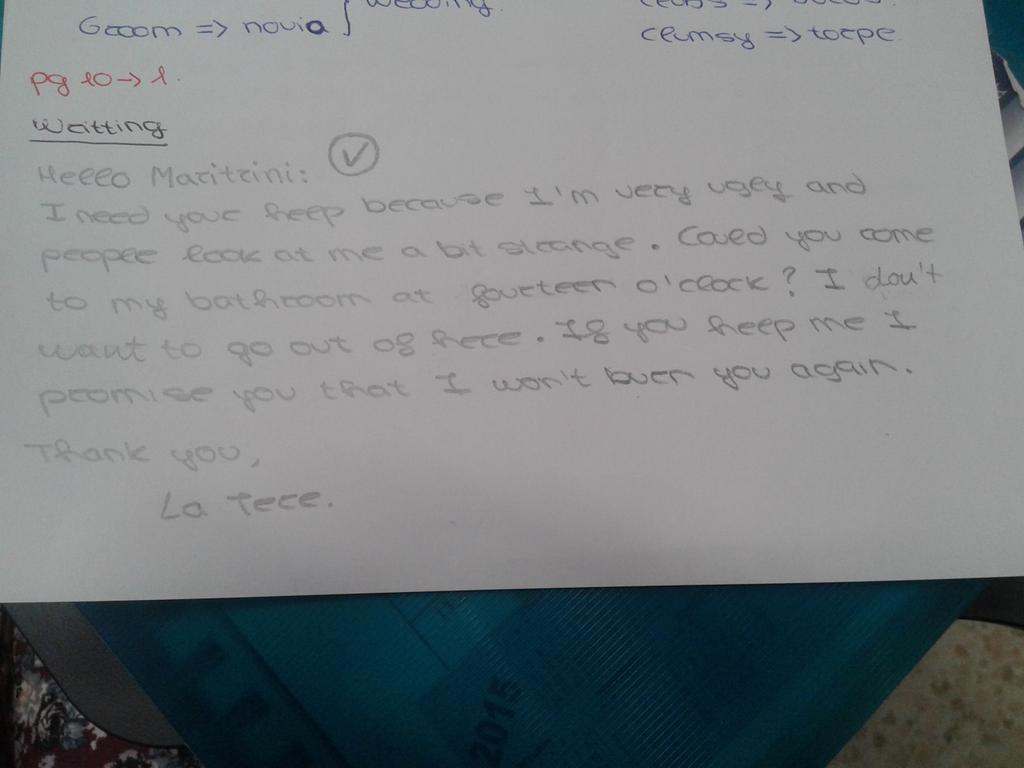 wedding.
Groom => novia
clumsy => torpe
pg 10 -> 1.
Writting
Hello Maritrini:
I need your help because I'm very ugly and
people look at me a bit strange. Could you come
to my bathroom at fourteen o'clock? I don't
want to go out of here. If you help me I
promise you that I won't you again.
Thank you,
La Tere.
2015